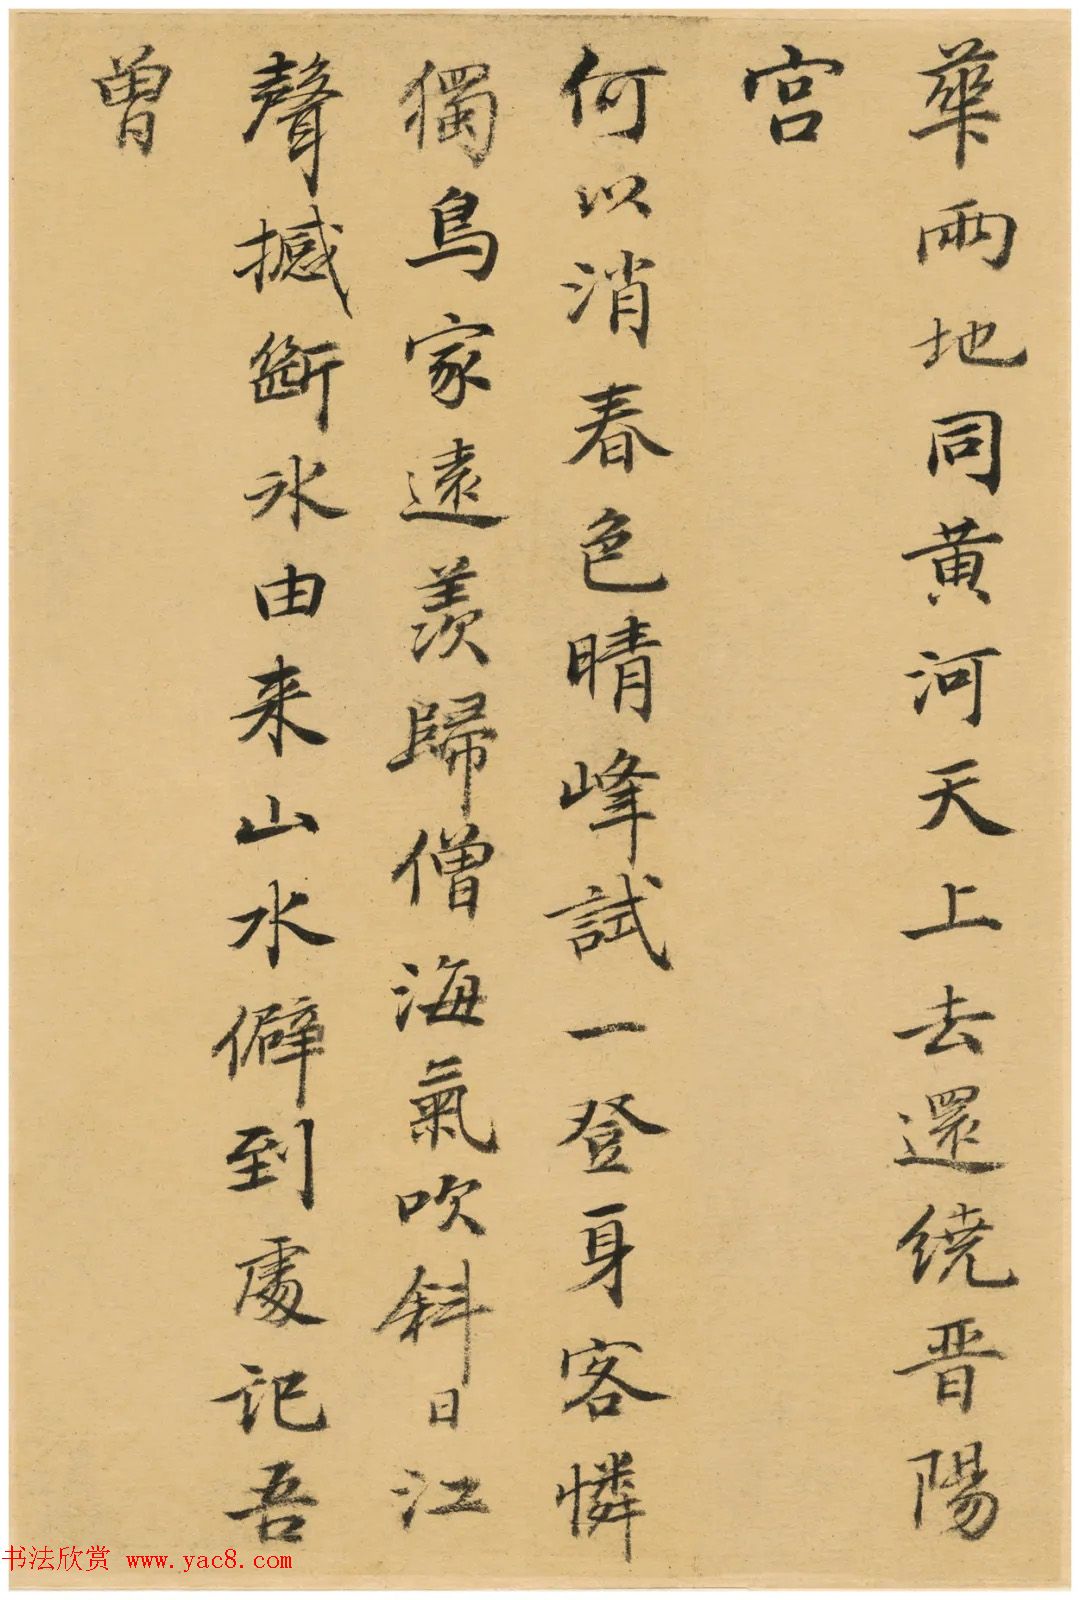 華兩地同黄河天上去還繞晋陽
宫
何以消春色晴峰試一登身客憐
獨鳥家遠羨歸僧海氣吹斜日江
聲撼斷冰由来山水僻到處記吾
曽
书法欣赏 www.yac8.com